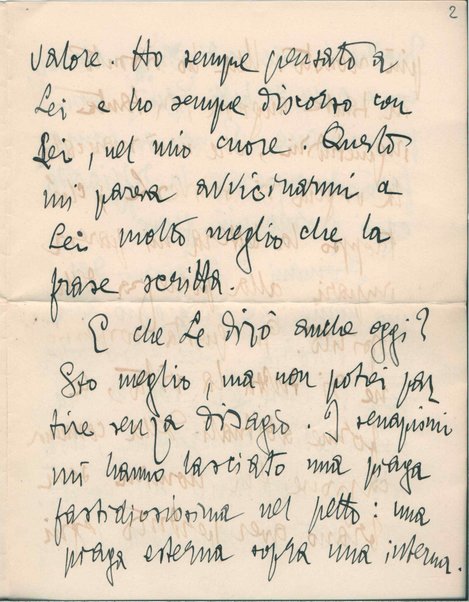 2
valore. Ho sempre pensato a
Lei e ho sempre discorso con
Lei, nel mio cuore. Questo
mi pareva avvicinarmi a
Lei molto meglio che la
frase scritta.
E che Le dirò anche oggi?
Sto meglio, ma non potrei par
tire senza disagio. I senapismi
mi hanno lasciato una piaga
fastidiosissima nel petto: una
piaga esterna sopra una interna.